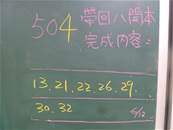 504 帶回八開本
完成內容：
13.21.22.26.29.
30.32